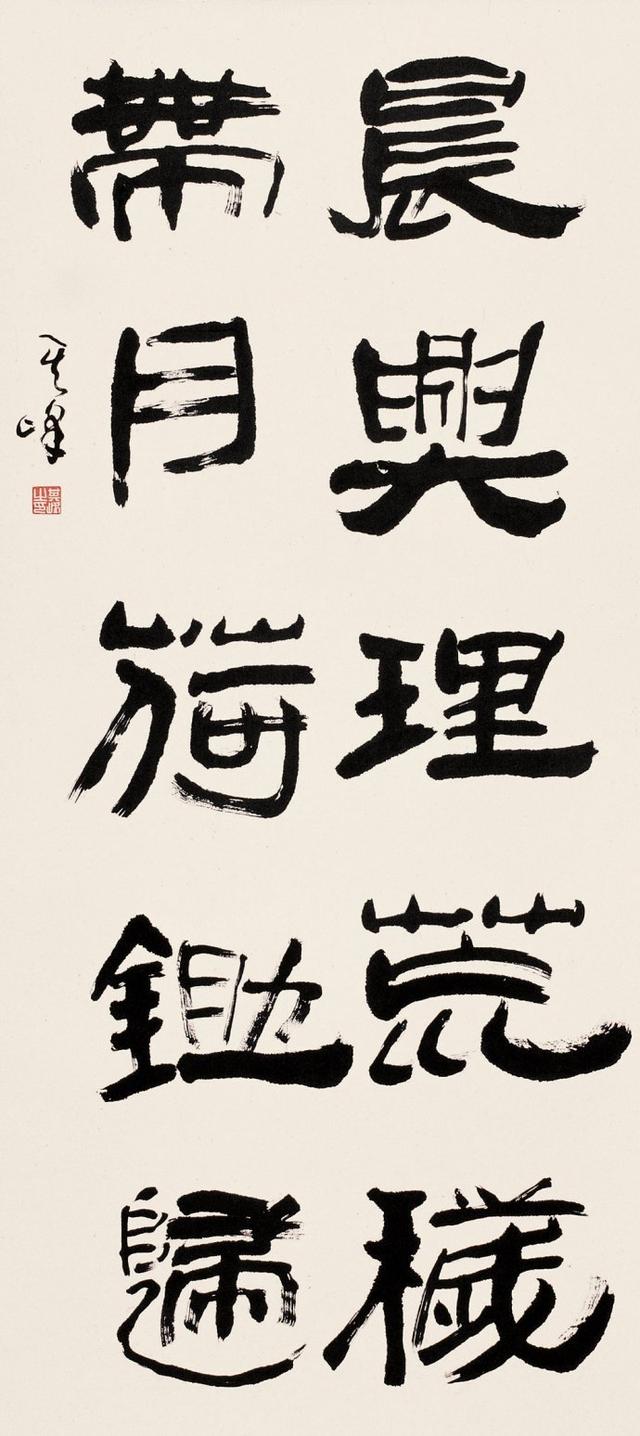 晨興理荒穢
帶月荷鋤歸
其峰